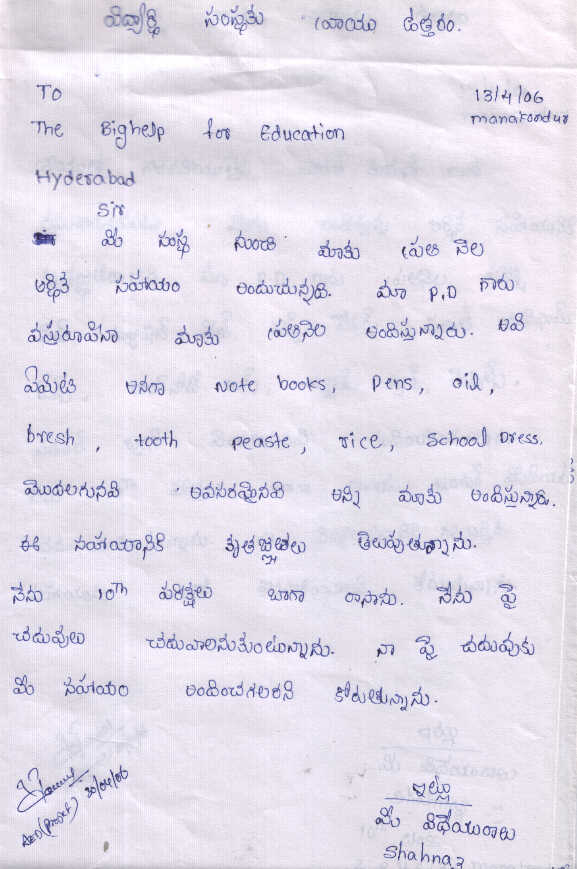 విద్యార్థి సంస్థకు వ్రాయు ఉత్తరం.
To
13/4/06
The Bighelp for Education
manakondur
Hyderabad
Sir
మీ సంస్థ నుండి మాకు ప్రతి నెల
ఆర్థిక సహాయం అందుచున్నది. మా P.D గారు
వస్తురూపేనా మాకు ప్రతినెల అందిస్తున్నారు. అవి
ఏమిటి అనగా Note books, Pens, oil,
bresh, tooth peaste, rice, School Dress.
మొదలగునవి అవసరమైనవి అన్ని మాకు అందిస్తున్నారు.
ఈ సహాయానికి కృతజ్ఞతలు తెలుపుతున్నాను.
నేను 10th పరీక్షలు బాగా రాసాను. నేను పై
చదువులు చదువాలనుకుంటున్నాను. నా పై చదువుకు
మీ సహాయం అందించగలరని కోరుతున్నాను.
30/04/06
ఇట్లు
మీ విధేయురాలు
Shahnaz